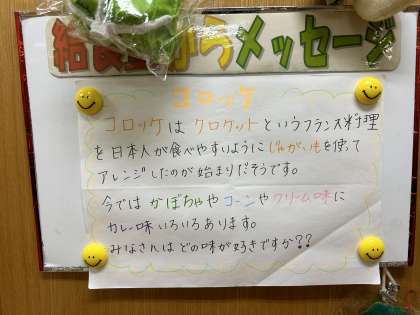 給食室からメッセージ
コロッケ
コロッケは クロケットというフランス料理
を日本人が食べやすいように じゃがいもを使って
アレンジしたのが始まりだそうです。
今では かぼちゃや コーンや クリーム味に
カレー味 いろいろあります。
みなさんは どの味が好きですか??